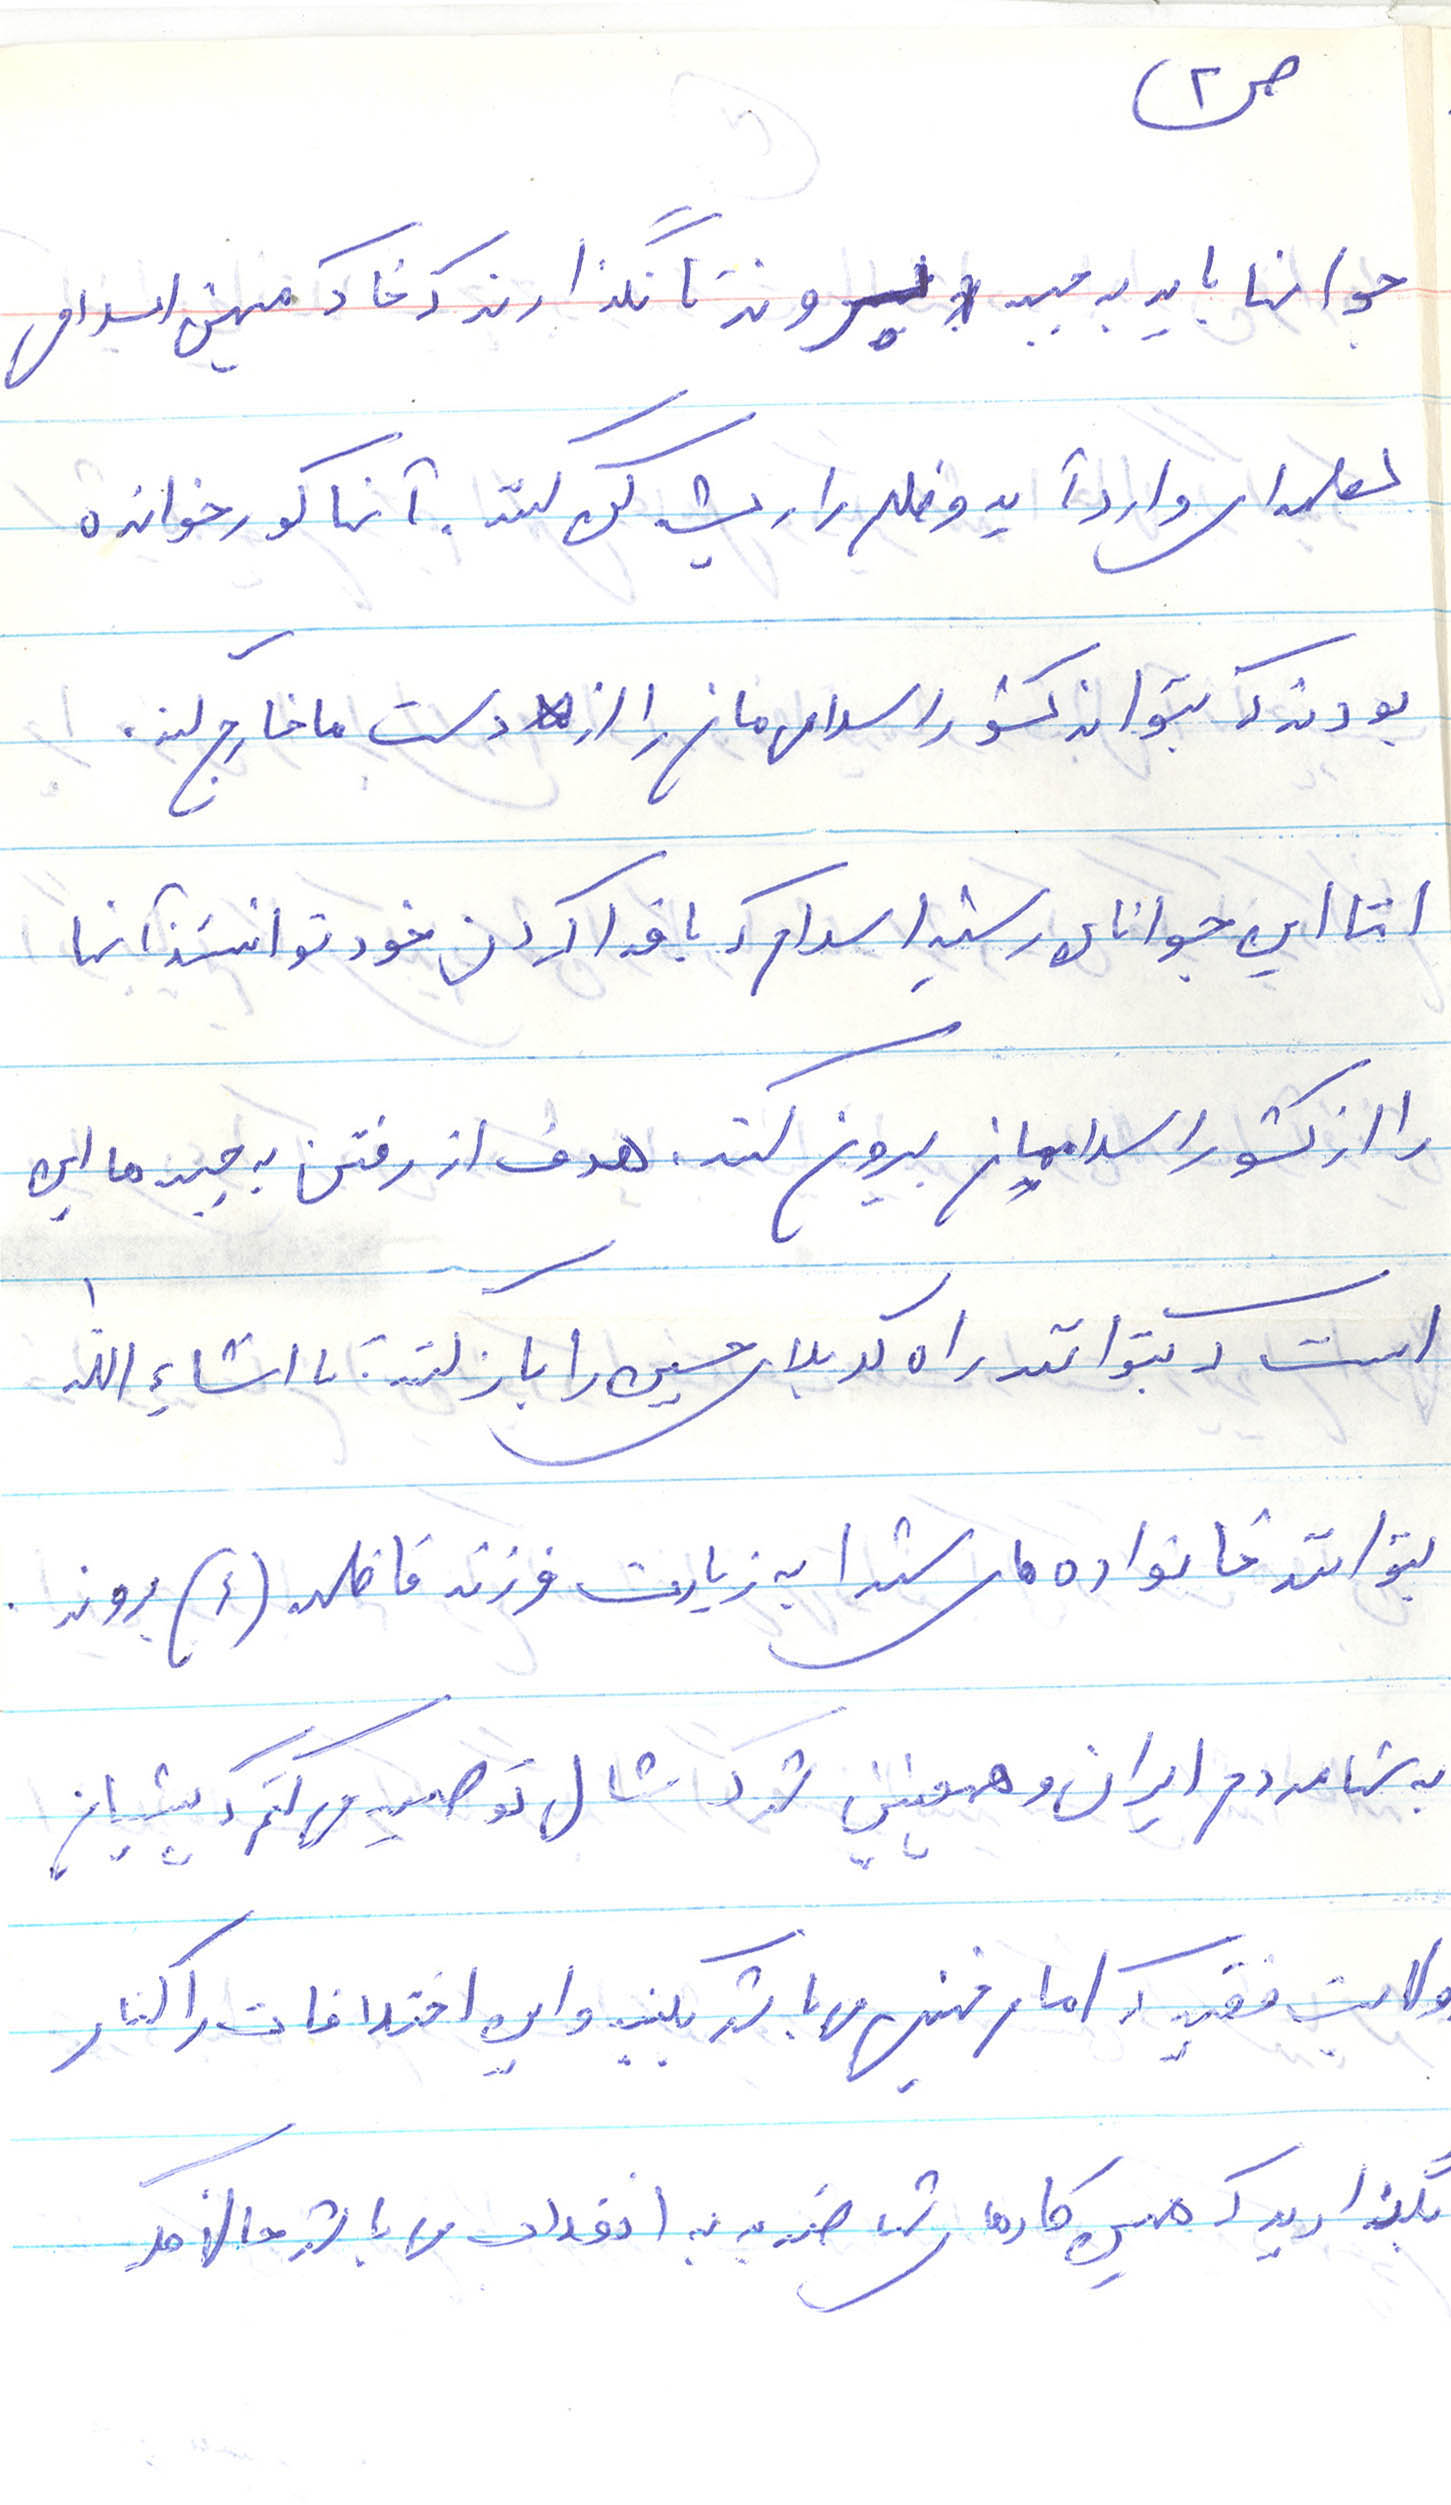 ص ۲
جوانها باید به جبهه بروند تا نگذارند که خاک میهن اسلامی
لطمه‌ای وارد آید و ظلم را ریشه کن کنند. آنها کور خوانده
بودند که بتواند کشور اسلامی مان را از دست ما خارج کند.
امّا این جوانان رشید اسلام که با فدا کردن خود توانستند آنها
را از کشور اسلامیمان بیرون کنند. هدف از رفتن به جبهه ما این
است که بتوانند راه کربلای حسین را باز کنند. تا انشاء الله
بتوانند خانواده های شهدا به زیارت فرزند فاطمه (ع) بروند.
به شما مردم ایران و همچنین توصیه می کنم که پشتیبان
ولایت فقیه که امام خمینی می باشد بکنید و این اختلافات را کنار
بگذارید که همین کارهای شما ضربه به انقلاب می باشد